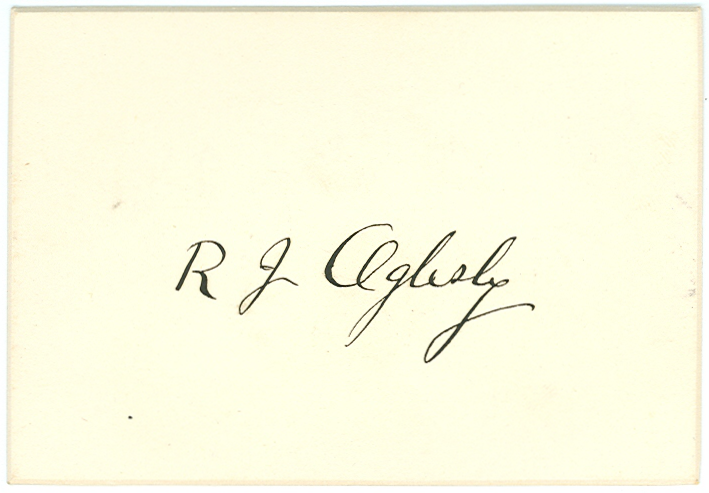 R J Oglesby